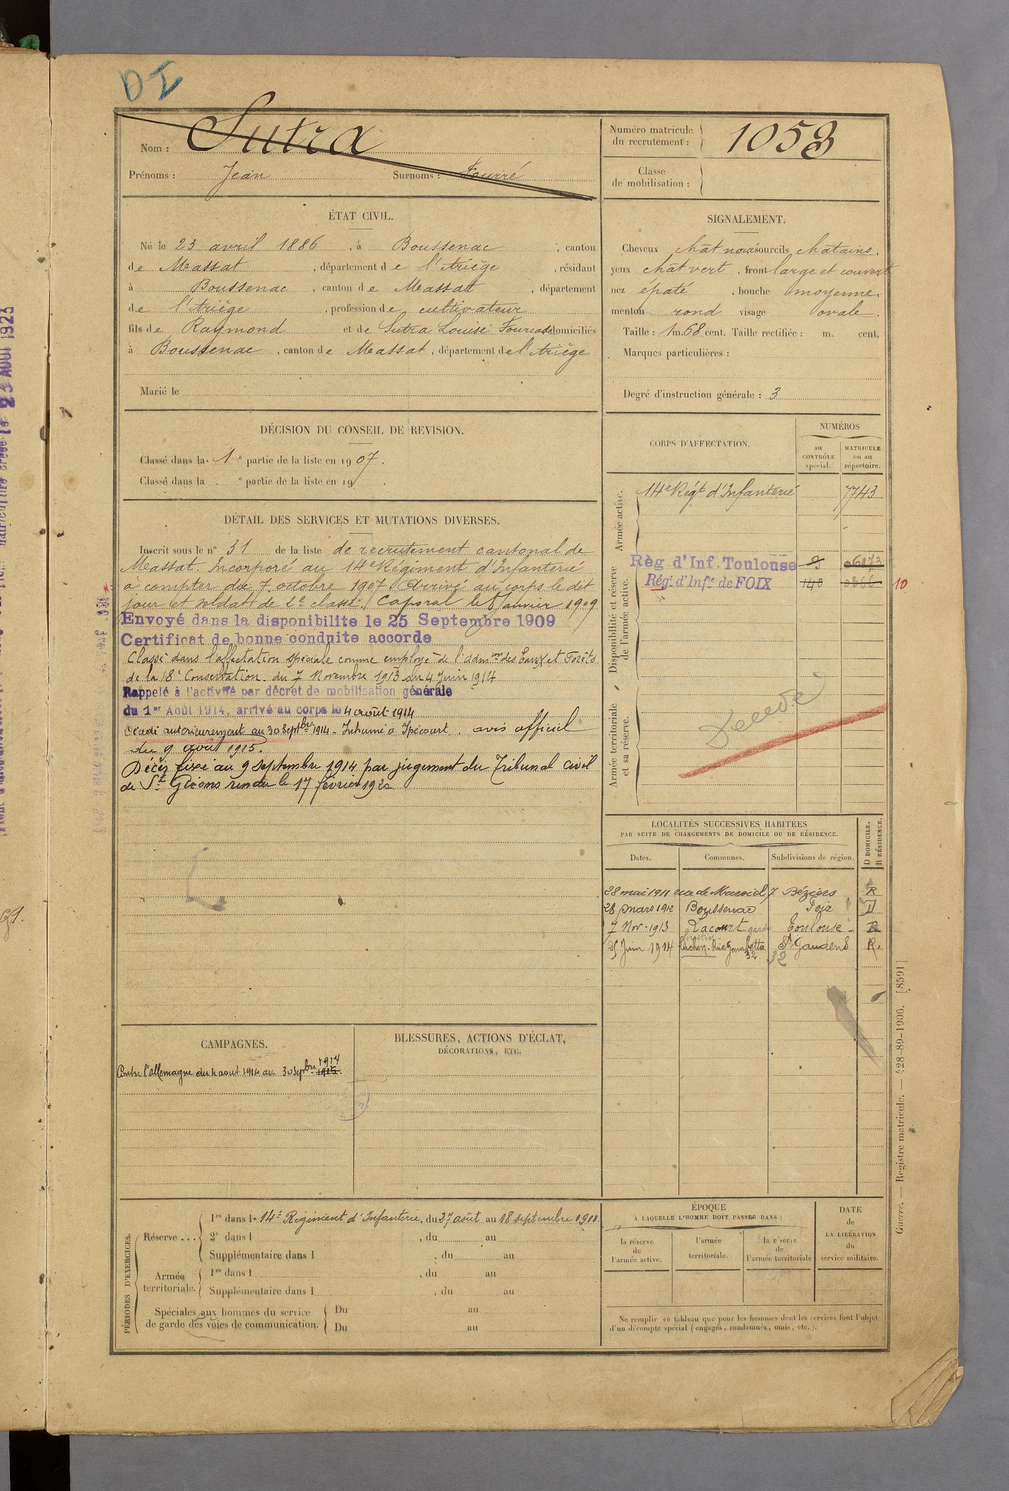 DI
Nom : Sutra
Prénoms : Jean Surnoms : Fourré
Numéro matricule du recrutement : 1053
Classe de mobilisation :
ÉTAT CIVIL.
Né le 23 avril 1886, à Boussenac, canton
de Massat, département de l'Ariège, résidant
à Boussenac, canton de Massat, département
de l'Ariège, profession de cultivateur
fils de Raymond et de Sutra Louise Fourcade domiciliés
à Boussenac, canton de Massat, département de l'Ariège
Marié le
SIGNALEMENT.
Cheveux chat noirs sourcils chatains,
yeux chat vert, front large et couvert
nez epaté, bouche moyenne,
menton rond visage ovale.
Taille : 1 m. 68 cent. Taille rectifiée : m. cent.
Marques particulières :
Degré d'instruction générale : 3
DÉCISION DU CONSEIL DE REVISION.
Classé dans la 1re partie de la liste en 1907.
Classé dans la e partie de la liste en 19 .
DÉTAIL DES SERVICES ET MUTATIONS DIVERSES.
Inscrit sous le n° 31 de la liste de recrutement cantonal de
Massat. Incorporé au 14e Régiment d'Infanterie
à compter du 7 octobre 1907. Arrivé au corps le dit
jour et soldat de 2e classe. Caporal le 8 Janvier 1909
Envoyé dans la disponibilite le 25 Septembre 1909
Certificat de bonne conduite accorde
Classé dans l'affectation spéciale comme employé de l'admon des Eaux et Forêts
de la 18e Conservation. du 7 Novembre 1913 au 4 Juin 1914
Rappelé à l'activité par décret de mobilisation générale
du 1er Août 1914, arrivé au corps le 4 août 1914
Décédé antérieurement au 30 Septbre 1914 - Inhumé à Ipécourt. avis officiel
du 9 août 1915.
Décès fixé au 9 Septembre 1914 par jugement du Tribunal civil
de St Girons rendu le 17 février 1920
CORPS D'AFFECTATION.
NUMÉROS
au CONTRÔLE spécial.
MATRICULE ou au répertoire.
Armée active.
14e Régt d'Infanterie 7743
Disponibilité et réserve de l'armée active.
Règ d'Inf. Toulouse
Rég.t d'Inf.ie de FOIX
10
Armée territoriale et sa réserve.
Décédé
LOCALITÉS SUCCESSIVES HABITÉES
PAR SUITE DE CHANGEMENTS DE DOMICILE OU DE RÉSIDENCE.
Dates. Communes. Subdivisions de région. D DOMICILE. R RÉSIDENCE.
28 mai 1911 Béziers R
28 mars 1912 Boussenac Foix D
7 Nov. 1913 Lacourt garde Toulouse R
25 Juin 1914 Luchon. Rue Gambetta 32 St Gaudens R.
CAMPAGNES.
Contre l'Allemagne du 4 aout 1914 au 30 septbre 1915 1914
BLESSURES, ACTIONS D'ÉCLAT,
DÉCORATIONS, ETC.
PÉRIODES D'EXERCICES.
Réserve ... 1re dans le 14e Régiment d'Infanterie, du 27 août au 18 septembre 1911.
2e dans l , du au
Supplémentaire dans l , du au
Armée territoriale. 1re dans l , du au
Supplémentaire dans l , du au
Spéciales aux hommes du service de garde des voies de communication. Du au
Du au
ÉPOQUE
A LAQUELLE L'HOMME DOIT PASSER DANS :
la réserve de l'armée active.
l'armée territoriale.
la réserve de l'armée territoriale
DATE de LA LIBÉRATION du service militaire.
Ne remplir ce tableau que pour les hommes dont les services font l'objet
d'un décompte spécial (engagés, condamnés, omis, etc.).
Guerre. — Registre matricule. — 428-89-1906. [8591]
23 AOUT 1923